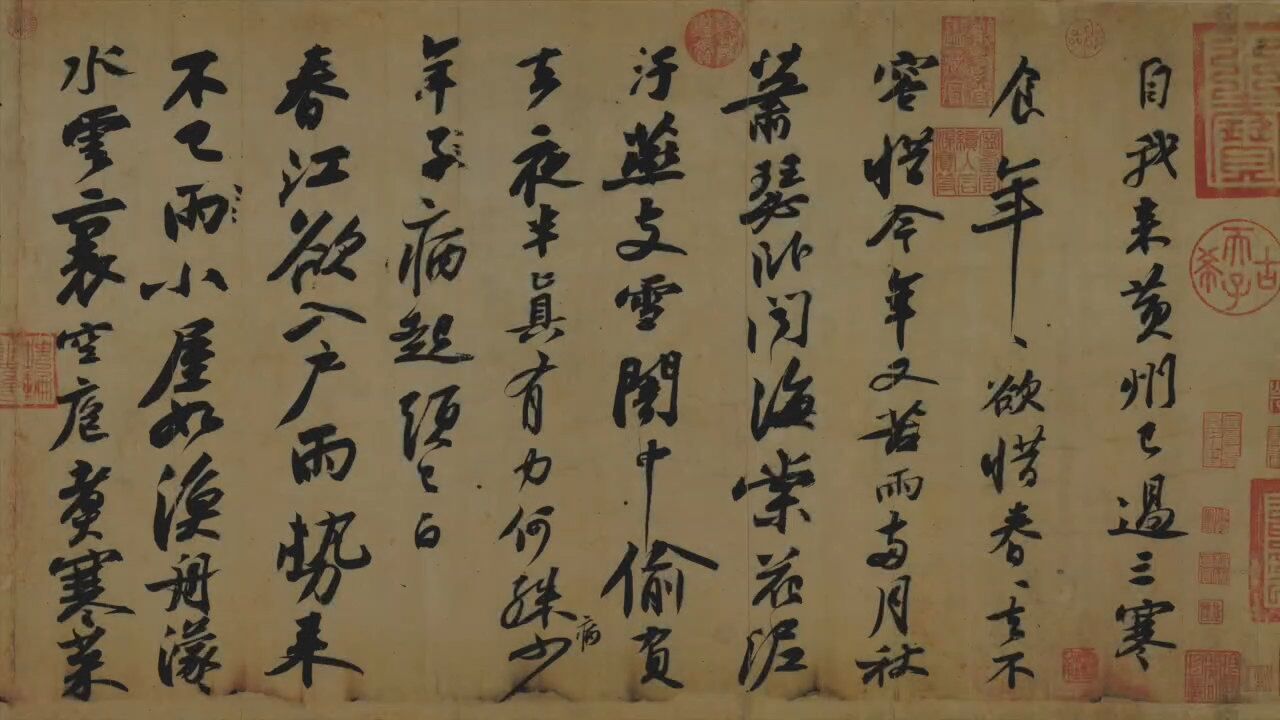 自我来黄州已過三寒
食年〻欲惜春〻去不
容惜今年又苦雨兩月秋
蕭瑟卧聞海棠花泥
汙燕支雪闇中偷負
去夜半真有力何殊少
病
年子病起頭已白
春江欲入户雨勢来
不已雨小屋如漁舟濛〻
水雲裏空庖煮寒菜
古希天子